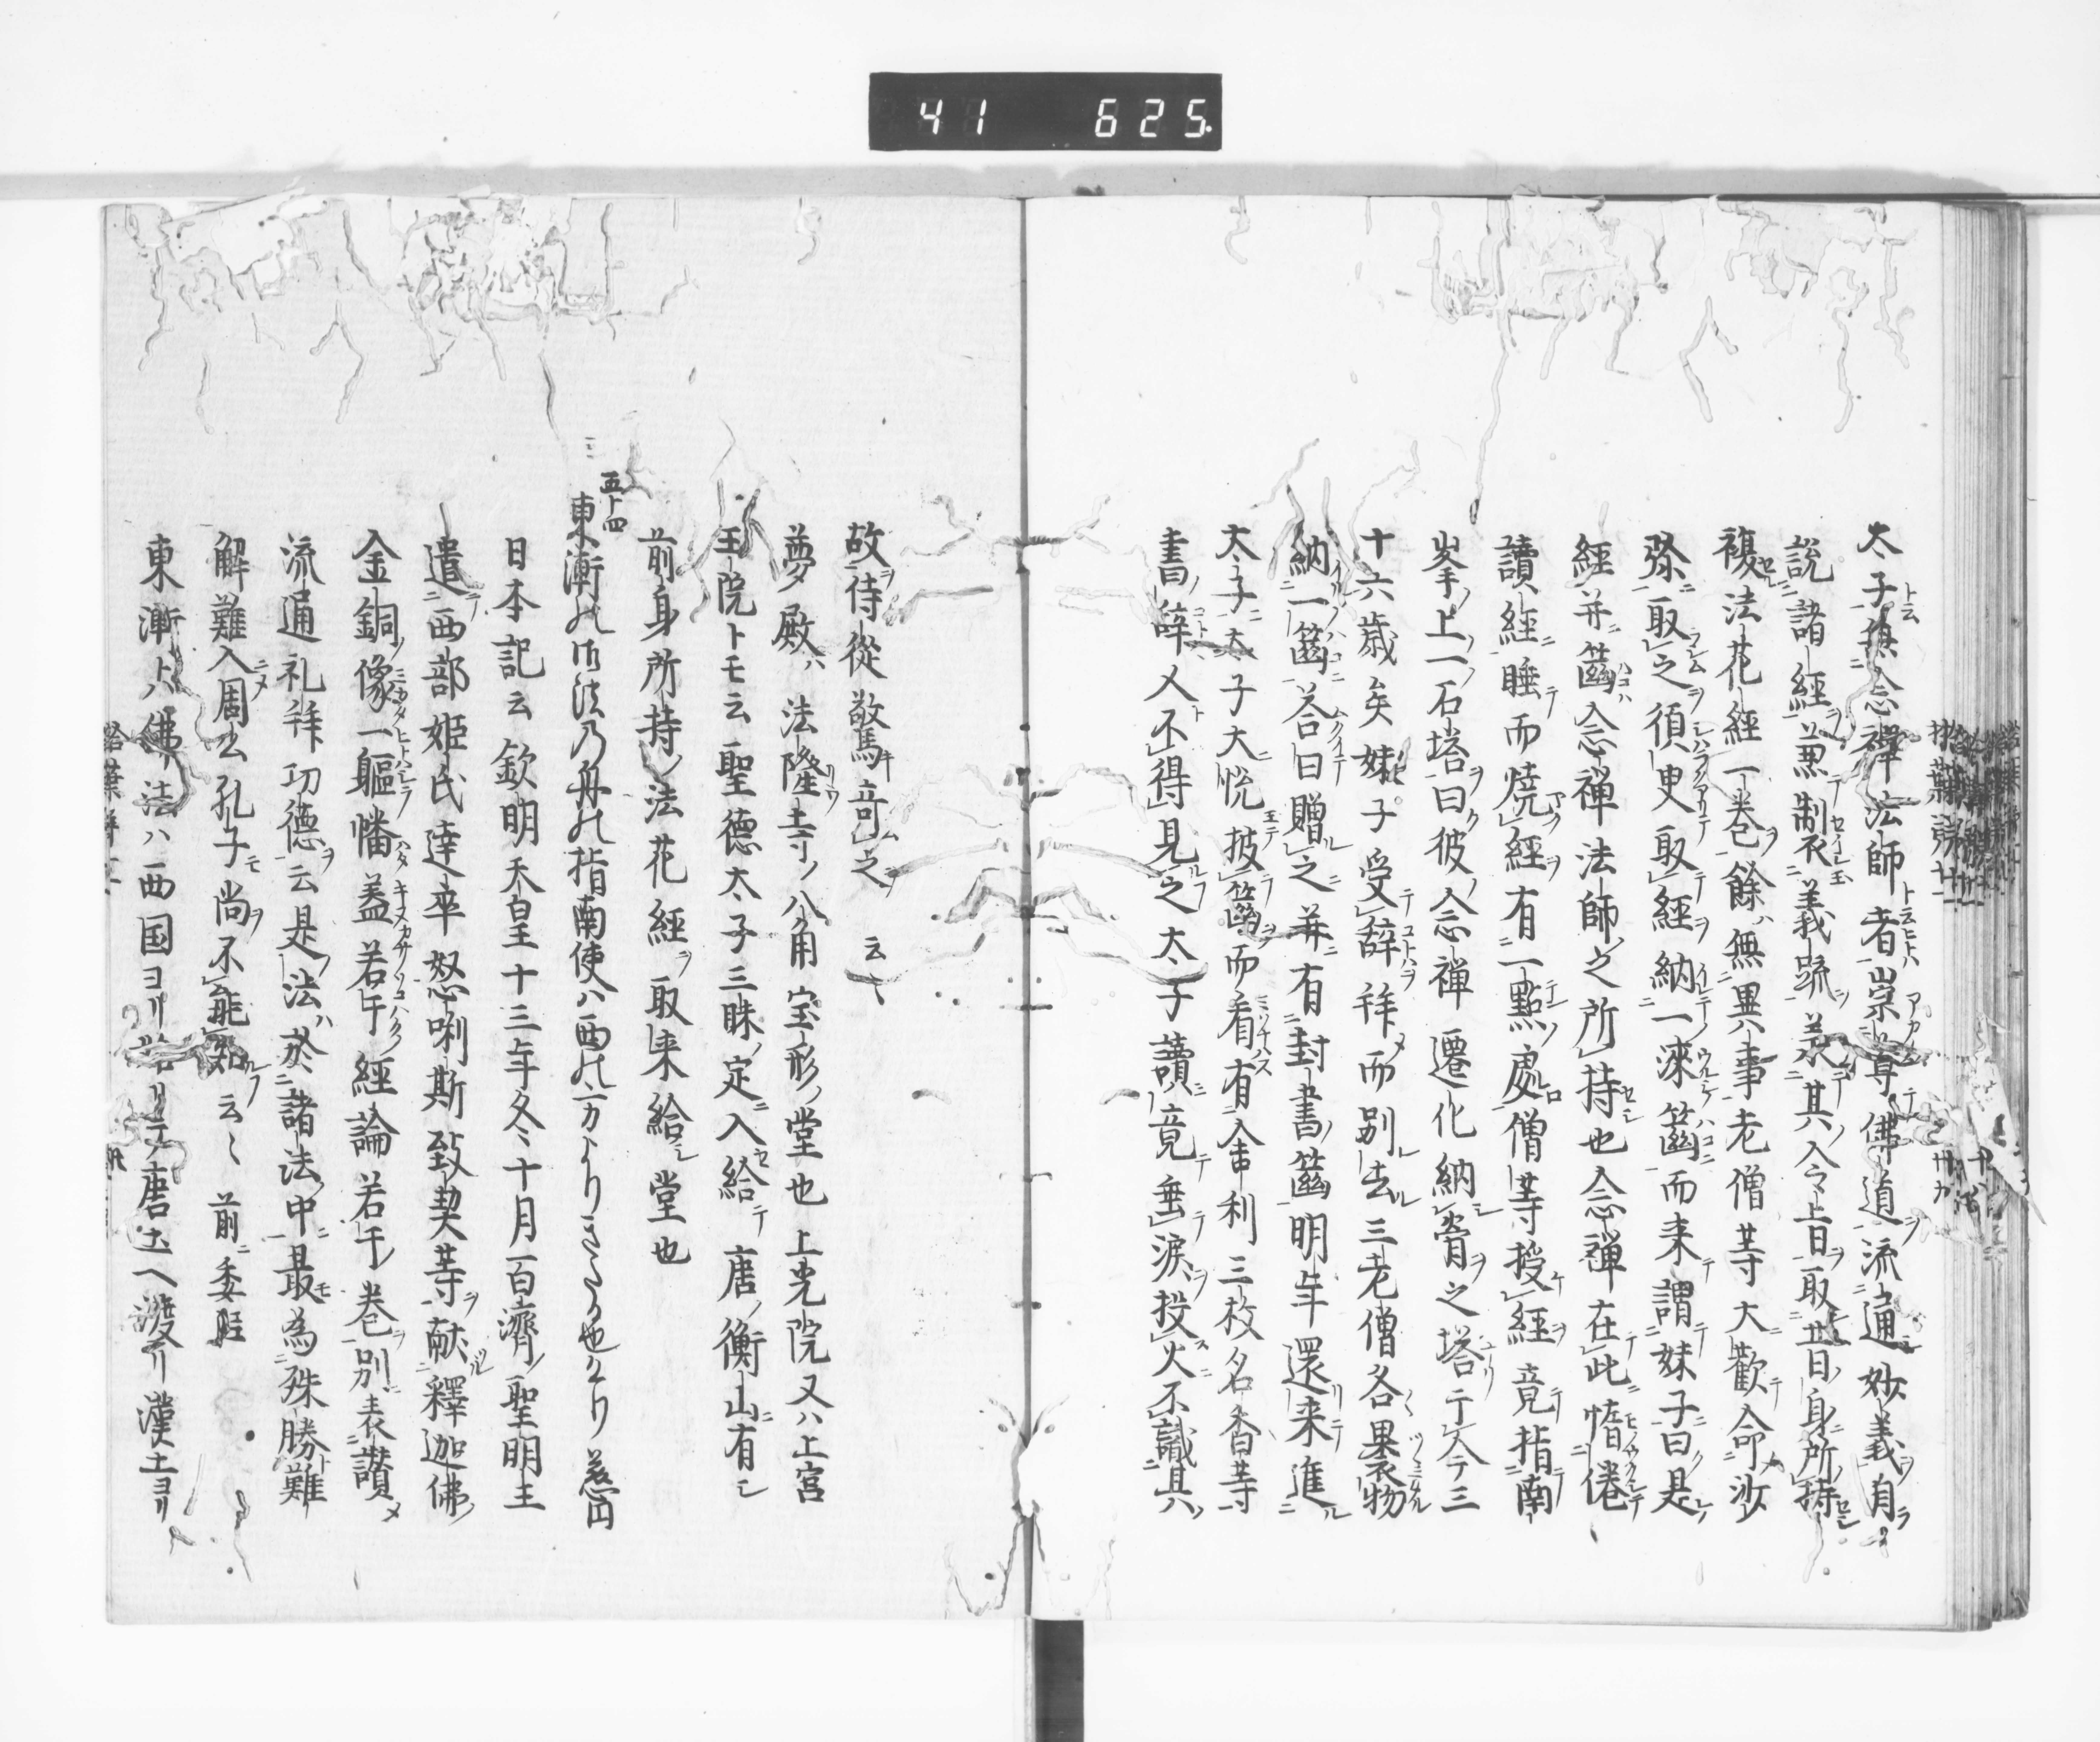 41 625
太子念禅法師者崇尊佛道流通妙義自
説諸經兼制衣義疏其入今上日取廿日身所持
複法花經一巻餘無異事老僧等大歡命沙
弥取之須臾取經納一漆筥而来謂妹子曰是
經并筥念禅法師之所持也念禅在此惰倦
讀經睡而燒經有一點處僧等授經竟指南
峯上一石塔曰彼念禅遷化納骨之塔于今三
十六歳矣妹子受辞拜而別去三老僧各裹物
納一筥答曰贈之并有封書筥明年還来進
太子太子大悦披筥而看有舎利三枚名香等
書辞人不得見之太子讀竟垂涙投火不識其
故侍從驚奇之 云々
夢殿ハ法隆寺ノ八角宝形ノ堂也上光院又ハ上宮
王院トモ云聖徳太子三昧定ニ入給テ唐ノ衡山ニ有シ
前身所持ノ法花經ヲ取来給シ堂也
五十四
東漸の御法乃舟の指南使ハ西の方よりきたる也けり 慈円
日本記云欽明天皇十三年冬十月百濟ノ聖明王
遣西部姫氏達率怒唎斯致契等献釋迦佛
金銅像一軀幡蓋若干經論若干巻別表讃
流通礼拜功徳云是法ハ於諸法中最為殊勝難
解難入周公孔子尚不能知云々 前委註
東漸トハ佛法ハ西国ヨリ始リテ唐土ヘ渡リ漢土ヨリ